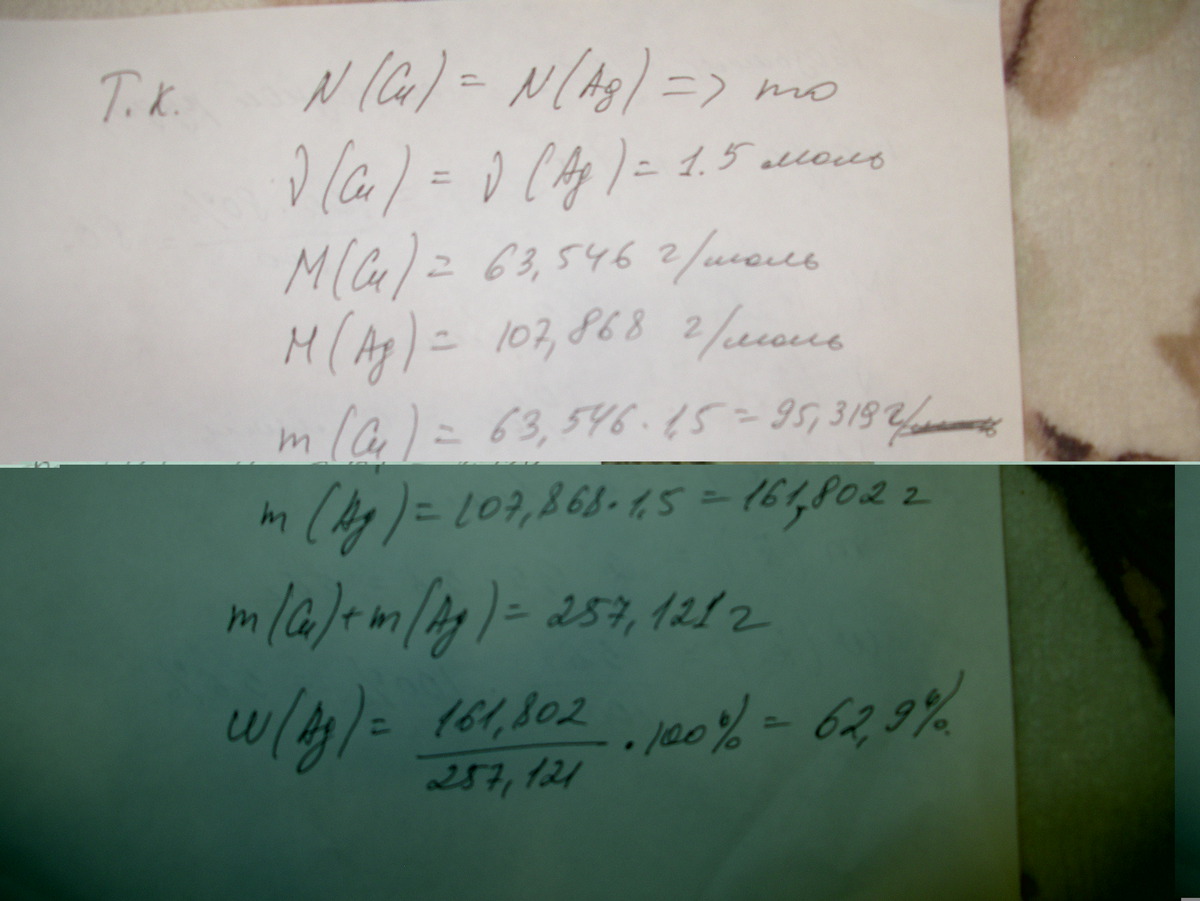 Т.к. N(Cu) = N(Ag) => то
ν(Cu) = ν(Ag) = 1.5 моль
M(Cu) = 63,546 г/моль
M(Ag) = 107,868 г/моль
m(Cu) = 63,546 · 1,5 = 95,319 г
m(Ag) = 107,868 · 1,5 = 161,802 г
m(Cu) + m(Ag) = 257,121 г
w(Ag) = 161,802 / 257,121 · 100% = 62,9%.